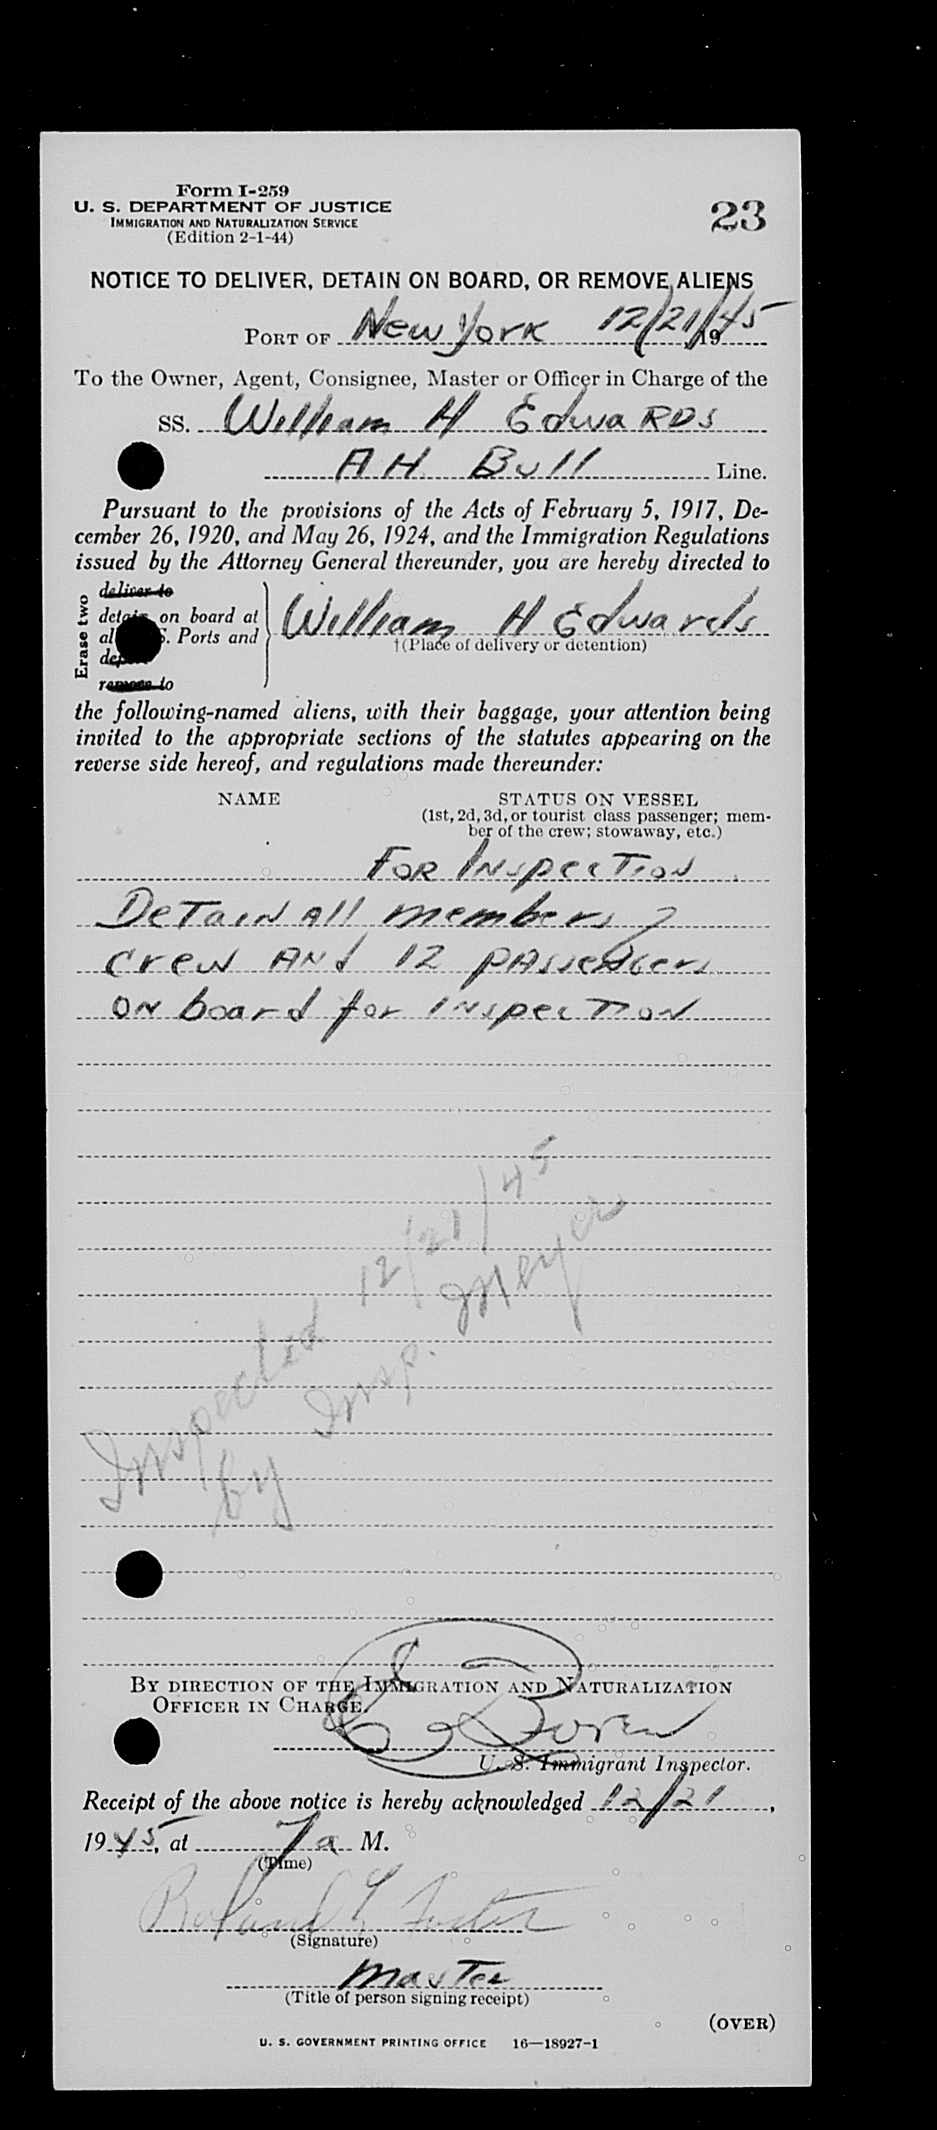 Form I-259
U. S. DEPARTMENT OF JUSTICE
IMMIGRATION AND NATURALIZATION SERVICE
(Edition 2-1-44)
23
NOTICE TO DELIVER, DETAIN ON BOARD, OR REMOVE ALIENS
PORT OF New York 12/21/45 19
To the Owner, Agent, Consignee, Master or Officer in Charge of the
SS. William H Edwards
A H Bull Line.
Pursuant to the provisions of the Acts of February 5, 1917, De-
cember 26, 1920, and May 26, 1924, and the Immigration Regulations
issued by the Attorney General thereunder, you are hereby directed to
Erase two
deliver to
detain on board at
al S. Ports and
dep
remove to
William H Edwards
†(Place of delivery or detention)
the following-named aliens, with their baggage, your attention being
invited to the appropriate sections of the statutes appearing on the
reverse side hereof, and regulations made thereunder:
NAME STATUS ON VESSEL
(1st, 2d, 3d, or tourist class passenger; mem-
ber of the crew; stowaway, etc.)
For Inspection
Detain all members of
crew and 12 passengers
on board for inspection
Inspected 12/21/45
by Insp. Meyer
BY DIRECTION OF THE IMMIGRATION AND NATURALIZATION
OFFICER IN CHARGE.
U. S. Immigrant Inspector.
Receipt of the above notice is hereby acknowledged 12/21,
1945, at 7 a M.
(Time)
Roland
(Signature)
Master
(Title of person signing receipt)
(OVER)
U. S. GOVERNMENT PRINTING OFFICE 16—18927-1